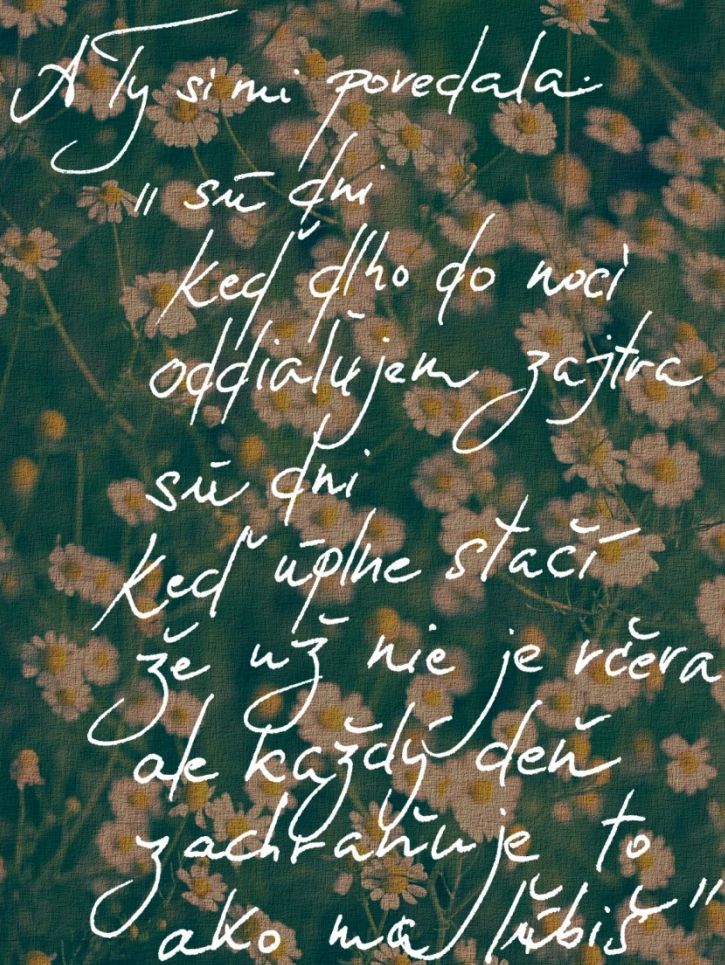 A Ty si mi povedala:
„ sú dni
keď dlho do noci
odďiaľujem zajtra
sú dni
keď úplne stačí
že už nie je včera
ale každý deň
zachraňuje to
ako ma ľúbiš"